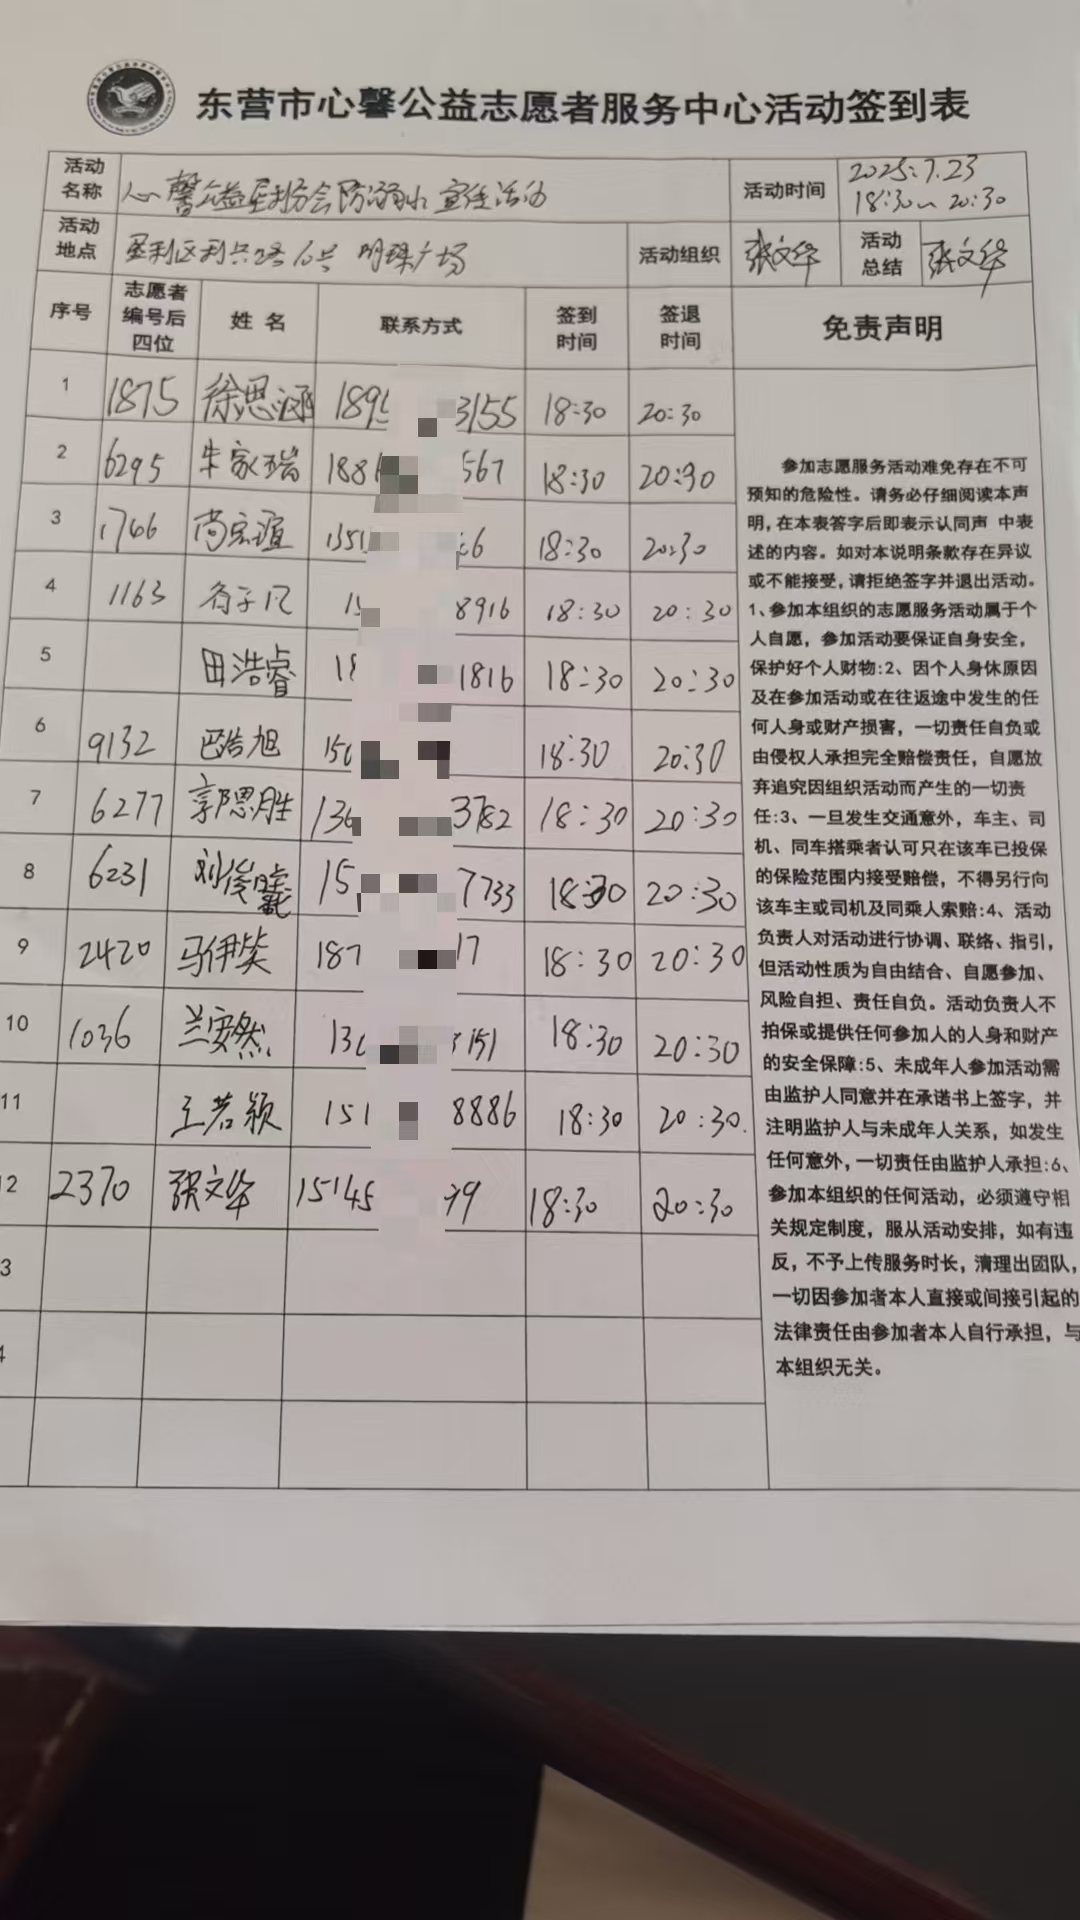 东营市心馨公益志愿者服务中心活动签到表
活动名称 心馨公益垦利分会防溺水宣传活动 活动时间 2025.7.23 18:30~20:30
活动地点 垦利区利兴路 号 明珠广场 活动组织 张文华 活动总结 张文华
序号 志愿者编号后四位 姓名 联系方式 签到时间 签退时间 免责声明
1 1875 徐思涵 189 3155 18:30 20:30
2 6295 朱家瑞 188 567 18:30 20:30
3 1766 尚宏谊 1351 6 18:30 20:30
4 1163 子凡 1 8916 18:30 20:30
5 田浩睿 18 1816 18:30 20:30
6 9132 巴浩旭 150 18:30 20:30
7 6277 郭思胜 136 3782 18:30 20:30
8 6231 刘俊 15 7733 18:30 20:30
9 2420 马伊 187 17 18:30 20:30
10 1036 兰安然 13 3151 18:30 20:30
11 王若颖 151 8886 18:30 20:30.
2 2370 张文华 15145 79 18:30 20:30
3
4
参加志愿服务活动难免存在不可
预知的危险性。请务必仔细阅读本声
明，在本表答字后即表示认同声 中表
述的内容。如对本说明条款存在异议
或不能接受，请拒绝签字并退出活动。
1、参加本组织的志愿服务活动属于个
人自愿，参加活动要保证自身安全，
保护好个人财物:2、因个人身休原因
及在参加活动或在往返途中发生的任
何人身或财产损害，一切责任自负或
由侵权人承担完全赔偿责任，自愿放
弃追究因组织活动而产生的一切责
任:3、一旦发生交通意外，车主、司
机、同车搭乘者认可只在该车已投保
的保险范围内接受赔偿，不得另行向
该车主或司机及同乘人索赔:4、活动
负责人对活动进行协调、联络、指引，
但活动性质为自由结合、自愿参加、
风险自担、责任自负。活动负责人不
拍保或提供任何参加人的人身和财产
的安全保障:5、未成年人参加活动需
由监护人同意并在承诺书上签字，并
注明监护人与未成年人关系，如发生
任何意外，一切责任由监护人承担:6、
参加本组织的任何活动，必须遵守相
关规定制度，服从活动安排，如有违
反，不予上传服务时长，清理出团队，
一切因参加者本人直接或间接引起的
法律责任由参加者本人自行承担，与
本组织无关。